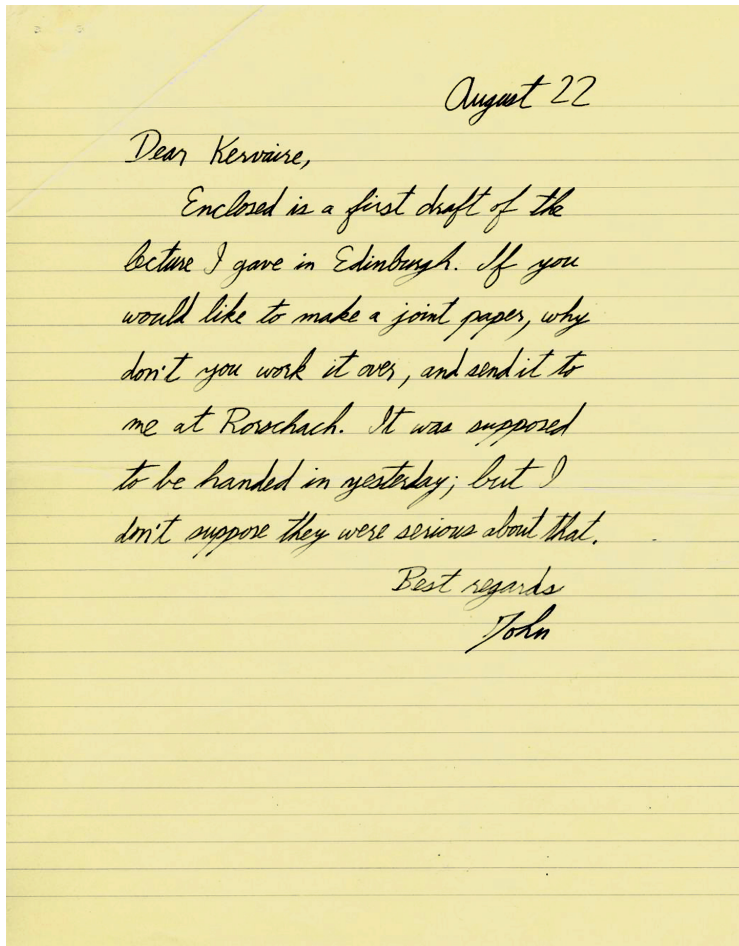 August 22
Dear Kervaire,
Enclosed is a first draft of the
lecture I gave in Edinburgh. If you
would like to make a joint paper, why
don't you work it over, and send it to
me at Rorschach. It was supposed
to be handed in yesterday; but I
don't suppose they were serious about that.
Best regards
John